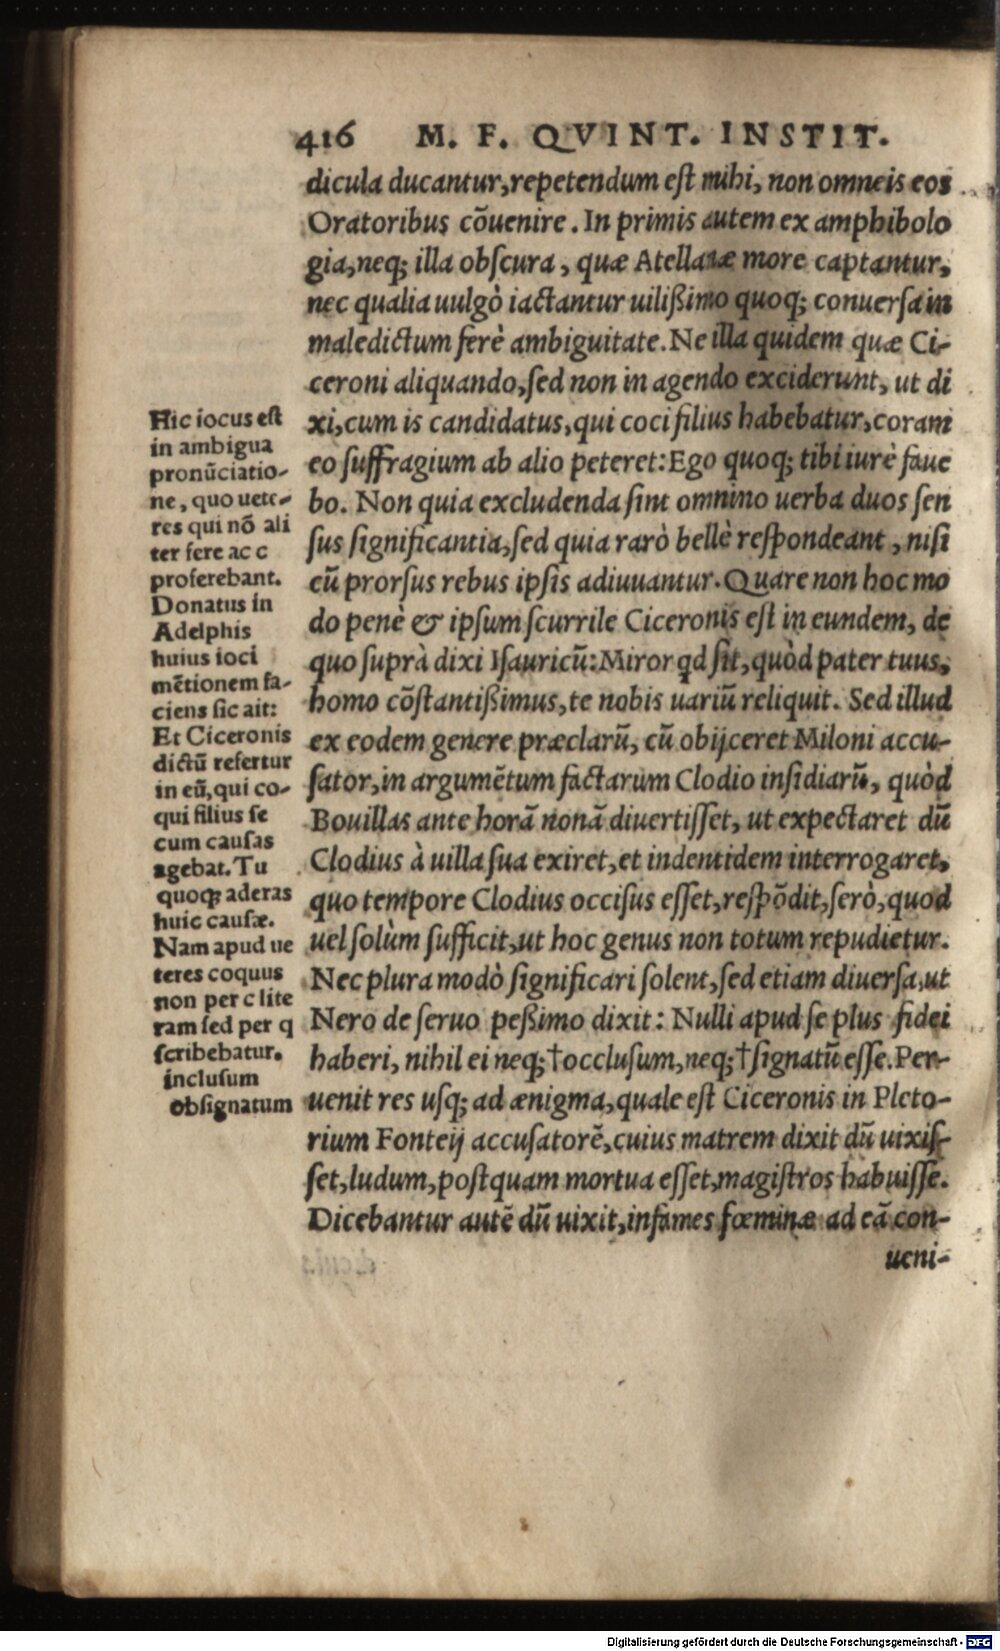 416 M. F. QVINT. INSTIT.
dicula ducantur, repetendum est mihi, non omneis eos
Oratoribus cōuenire. In primis autem ex amphibolo
gia, neq; illa obscura, quæ Atellanæ more captantur,
nec qualia uulgò iactantur uilißimo quoq; conuersa in
maledictum ferè ambiguitate. Ne illa quidem quæ Ci-
ceroni aliquando, sed non in agendo exciderunt, ut di
xi, cum is candidatus, qui coci filius habebatur, coram
eo suffragium ab alio peteret: Ego quoq; tibi iurè faue
bo. Non quia excludenda sint omnino uerba duos sen
sus significantia, sed quia rarò bellè respondeant, nisi
cū prorsus rebus ipsis adiuuantur. Quare non hoc mo
do penè & ipsum scurrile Ciceronis est in eundem, de
quo suprà dixi Isauricū: Miror qd sit, quòd pater tuus,
homo cōstantißimus, te nobis uariū reliquit. Sed illud
ex eodem genere præclarū, cū obijceret Miloni accu-
sator, in argumētum factarum Clodio insidiarū, quòd
Bouillas ante horā nonā diuertisset, ut expectaret dū
Clodius à uilla sua exiret, et indentidem interrogaret,
quo tempore Clodius occisus esset, respōdit, serò, quod
uel solùm sufficit, ut hoc genus non totum repudietur.
Nec plura modò significari solent, sed etiam diuersa, ut
Nero de seruo peßimo dixit: Nulli apud se plus fidei
haberi, nihil ei neq; †occlusum, neq; †signatū esse. Per-
uenit res usq; ad ænigma, quale est Ciceronis in Pleto-
rium Fonteij accusatorē, cuius matrem dixit dū uixis-
set, ludum, postquam mortua esset, magistros habuisse.
Dicebantur autē dū uixit, infames fœminæ ad eā con-
ueni-
Hic iocus est
in ambigua
pronūciatio-
ne, quo uete-
res qui nō ali
ter fere ac c
proferebant.
Donatus in
Adelphis
huius ioci
mētionem fa-
ciens sic ait:
Et Ciceronis
dictū refertur
in eū, qui co-
qui filius se
cum causas
agebat. Tu
quoq; aderas
huic causæ.
Nam apud ue
teres coquus
non per c lite
ram sed per q
scribebatur.
inclusum
obsignatum
Digitalisierung gefördert durch die Deutsche Forschungsgemeinschaft - DFG